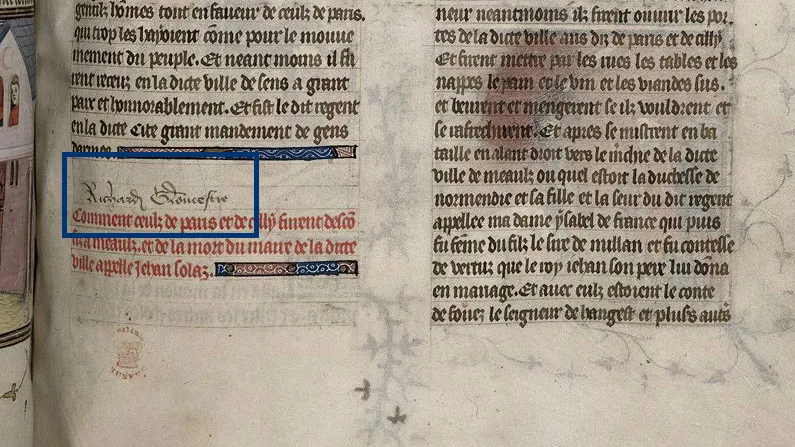 gentilz hōmes tout en faueur de ceulz de paris.
qui trop les hayoient cōme pour le mouue
ment du peuple. Et neant moins il fu
rent receuz en la dicte ville de sens a grant
paix et honnorablement. Et fist le dit regent
en la dicte Cite grant mandement de gens
darmes
Richard Gloucestre
Comment ceulz de paris et de cilly furent descō
fiz a meaulz. et de la mort du maire de la dicte
ville appelle Jehan solaz.
neur neantmoins ilz firent ouurir les por
tes de la dicte ville aus diz de paris et de cilly
Et firent mettre par les rues les tables et les
nappes le pain et le vin et les viandes sus.
et beurent et mengerent se ilz vouldrent et
se rafreschirent. Et apres se mistrent en ba
taille en alant droit vers le marchie de la dicte
ville de meaulz ou quel estoit la duchesse de
normendie et sa fille et la seur du dit regent
appellee ma dame ysabel de france qui puis
fu fēme du filz le sire de millan et fu contesse
de vertuz que le roy iehan son pere lui dōna
en mariage. Et auec eulz estoient le conte
de fouez le seigneur de hangest et plusrs autrs